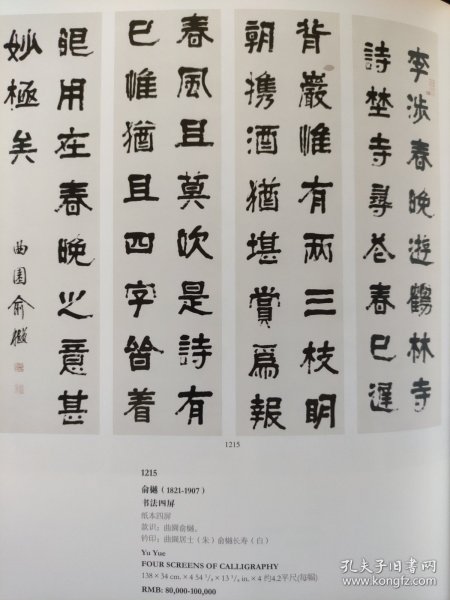 李涉春晚遊鶴林寺
詩埜寺尋花春已遲
背巖惟有兩三枝明
朝携酒猶堪賞爲報
春風且莫吹是詩有
已惟猶且四字皆着
眼用在春晚之意甚
妙極矣
曲園俞樾
1215
1215
俞樾（1821-1907）
书法四屏
纸本四屏
款识：曲園俞樾。
钤印：曲園居士（朱）俞樾长寿（白）
Yu Yue
FOUR SCREENS OF CALLIGRAPHY
138 × 34 cm. × 4 54 1/3 × 13 1/3 in. × 4 约4.2平尺(每幅)
RMB: 80,000-100,000
孔夫子旧书网